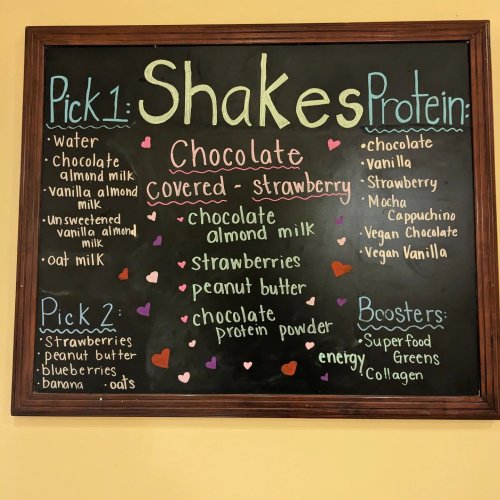 Shakes
Pick 1:
• Water
• Chocolate
almond milk
• Vanilla almond
milk
• unsweetened
vanilla almond
milk
• oat milk
Pick 2:
• Strawberries
• peanut butter
• blueberries
• banana • oats
Chocolate
covered - strawberry
chocolate
almond milk
strawberries
peanut butter
chocolate
protein powder
Protein:
• chocolate
• vanilla
• Strawberry
• Mocha
Cappuchino
• Vegan Chocolate
• Vegan Vanilla
Boosters:
• Superfood
Greens
energy
• Collagen